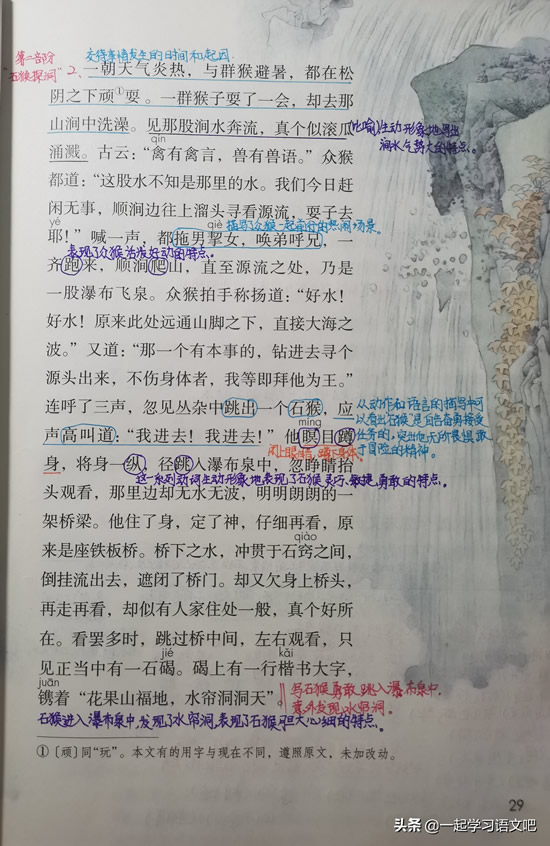 第二部分
"石猴探洞"
交待事情发生的时间和起因
2、一朝天气炎热，与群猴避暑，都在松
阴之下顽①耍。一群猴子耍了一会，却去那
山涧中洗澡。见那股涧水奔流，真个似滚瓜
(比喻)生动形象地写出
涧水气势大的特点。
qín
涌溅。古云：“禽有禽言，兽有兽语。”众猴
都道：“这股水不知是那里的水。我们今日赶
闲无事，顺涧边往上溜头寻看源流，耍子去
yé
qiè
描写了众猴一起前行的热闹场景。
耶！”喊一声，都拖男挈女，唤弟呼兄，一
表现了众猴活泼好动的特点。
齐跑来，顺涧爬山，直至源流之处，乃是
一股瀑布飞泉。众猴拍手称扬道：“好水！
好水！原来此处远通山脚之下，直接大海之
波。”又道：“那一个有本事的，钻进去寻个
源头出来，不伤身体者，我等即拜他为王。”
连呼了三声，忽见丛杂中跳出一个石猴，应
从动作和语言的描写中可
以看出石猴是自告奋勇接受
任务的，突出他无所畏惧敢
于冒险的精神。
míng
声高叫道：“我进去！我进去！”他瞑目蹲
闭上眼睛，蹲下身体。
身，将身一纵，径跳入瀑布泉中，忽睁睛抬
这一系列动词生动形象地表现了石猴灵巧、敏捷、勇敢的特点。
头观看，那里边却无水无波，明明朗朗的一
架桥梁。他住了身，定了神，仔细再看，原
来是座铁板桥。桥下之水，冲贯于石窍之间，
qiào
倒挂流出去，遮闭了桥门。却又欠身上桥头，
再走再看，却似有人家住处一般，真个好所
在。看罢多时，跳过桥中间，左右观看，只
jié
kǎi
见正当中有一石碣。碣上有一行楷书大字，
juān
镌着“花果山福地，水帘洞洞天”。
写石猴勇敢跳入瀑布泉中，
意外发现水帘洞。
石猴进入瀑布泉中，发现了水帘洞，表现了石猴胆大心细的特点。
①〔顽〕同“玩”。本文有的用字与现在不同，遵照原文，未加改动。
29
头条 @一起学习语文吧